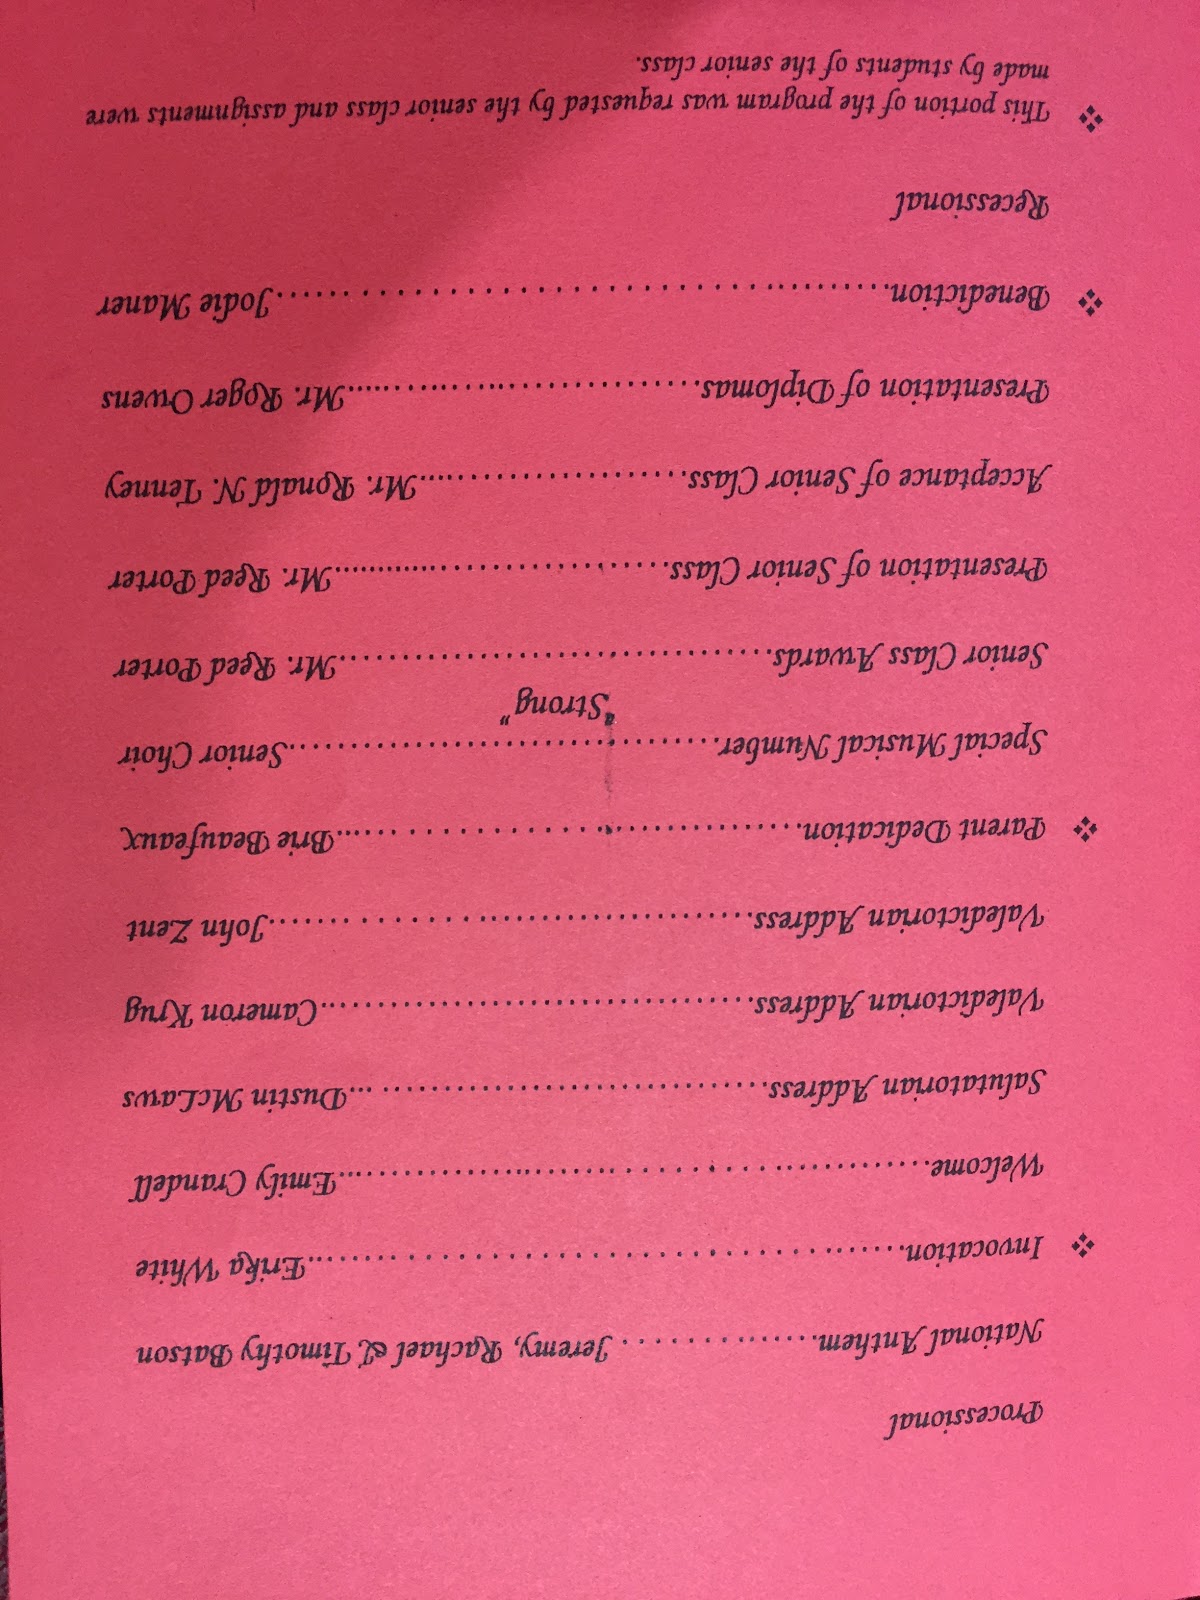 Processional
National Anthem.................Jeremy, Rachael & Timothy Batson
❖ Invocation.............................................Erika White
Welcome.............................................Emily Crandell
Salutatorian Address.....................................Dustin McLaws
Valedictorian Address.....................................Cameron Krug
Valedictorian Address.....................................John Zent
❖ Parent Dedication.....................................Brie Beaufeaux
Special Musical Number.....................................Senior Choir
"Strong"
Senior Class Awards.....................................Mr. Reed Porter
Presentation of Senior Class...............................Mr. Reed Porter
Acceptance of Senior Class.........................Mr. Ronald N. Tenney
Presentation of Diplomas.................................Mr. Roger Owens
❖ Benediction.............................................Jodie Maner
Recessional
❖ This portion of the program was requested by the senior class and assignments were
made by students of the senior class.